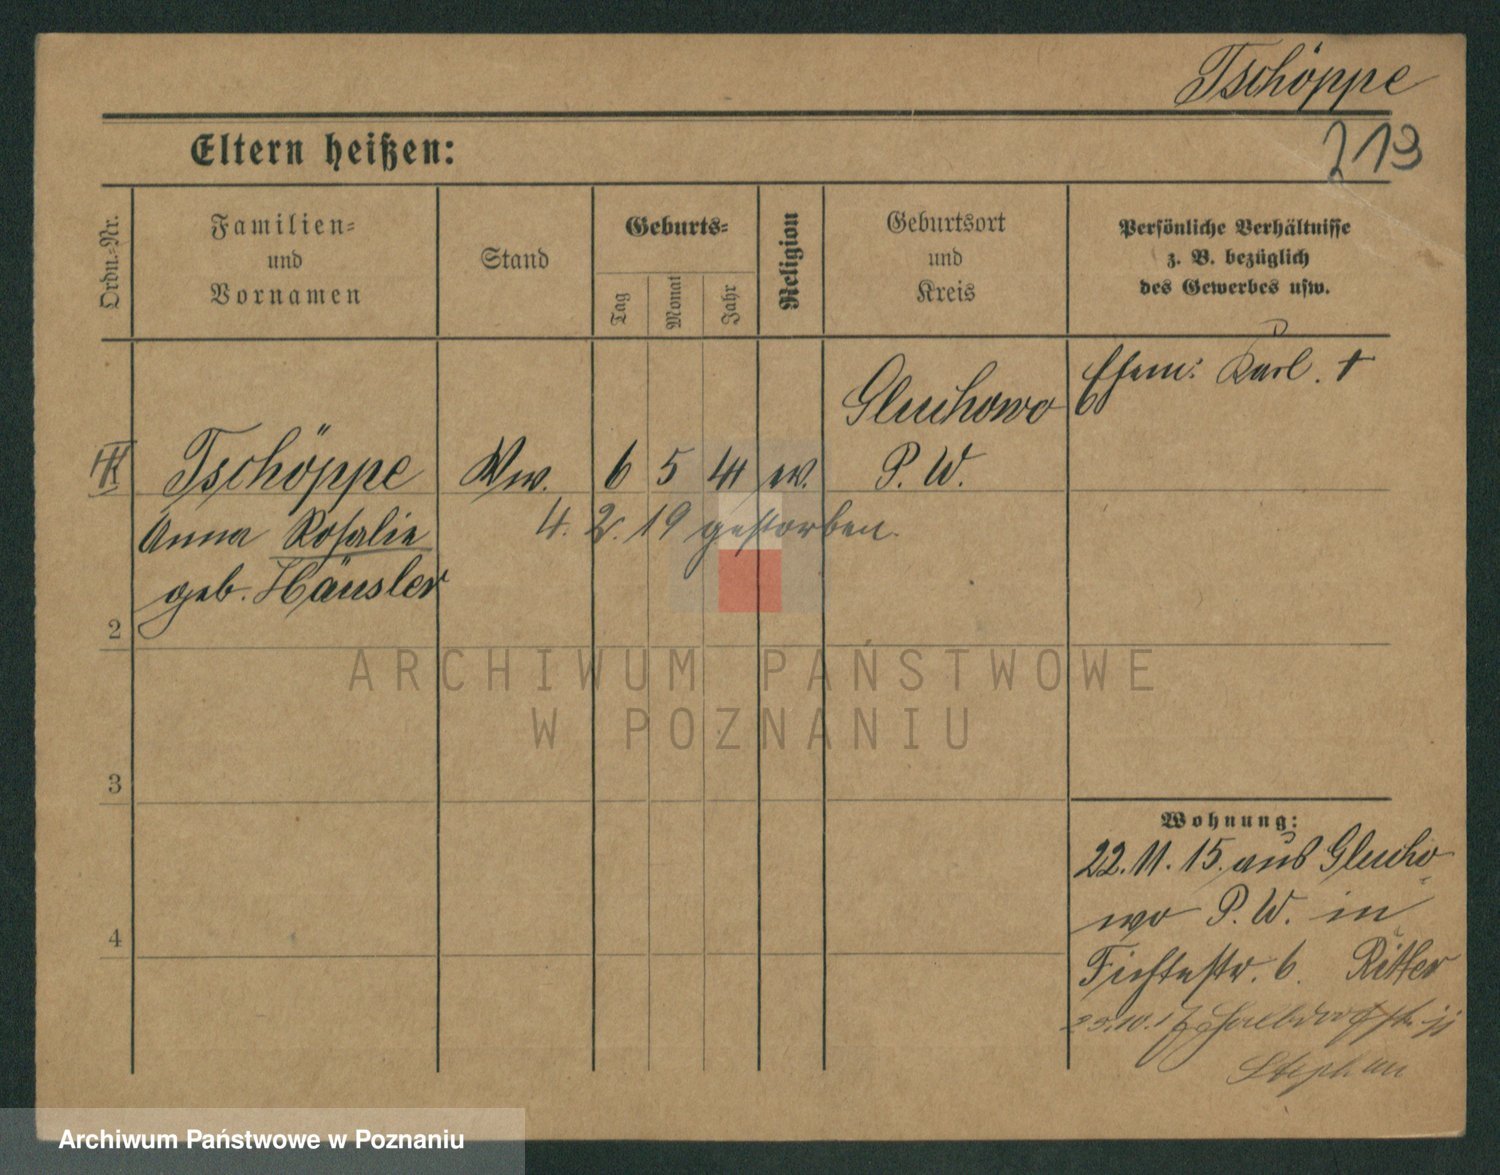 Tschöppe
Eltern heißen:
219
Ordn.-Nr.
Familien-
und
Vornamen
Stand
Geburts-
Tag
Monat
Jahr
Religion
Geburtsort
und
Kreis
Persönliche Verhältnisse
z. B. bezüglich
des Gewerbes usw.
Ehem: Karl. †
Gluchowo
Tschöppe Ww. 6 5 41 ev. P. W.
Anna Rosalie
4. 2. 19 gestorben.
geb. Häusler
2
ARCHIWUM PAŃSTWOWE
W POZNANIU
3
Wohnung:
22. 11. 15. aus Glucho-
wo P. W. in
4
Fichtestr. 6. Ritter
Halbdorfstr.
Stephan
Archiwum Państwowe w Poznaniu